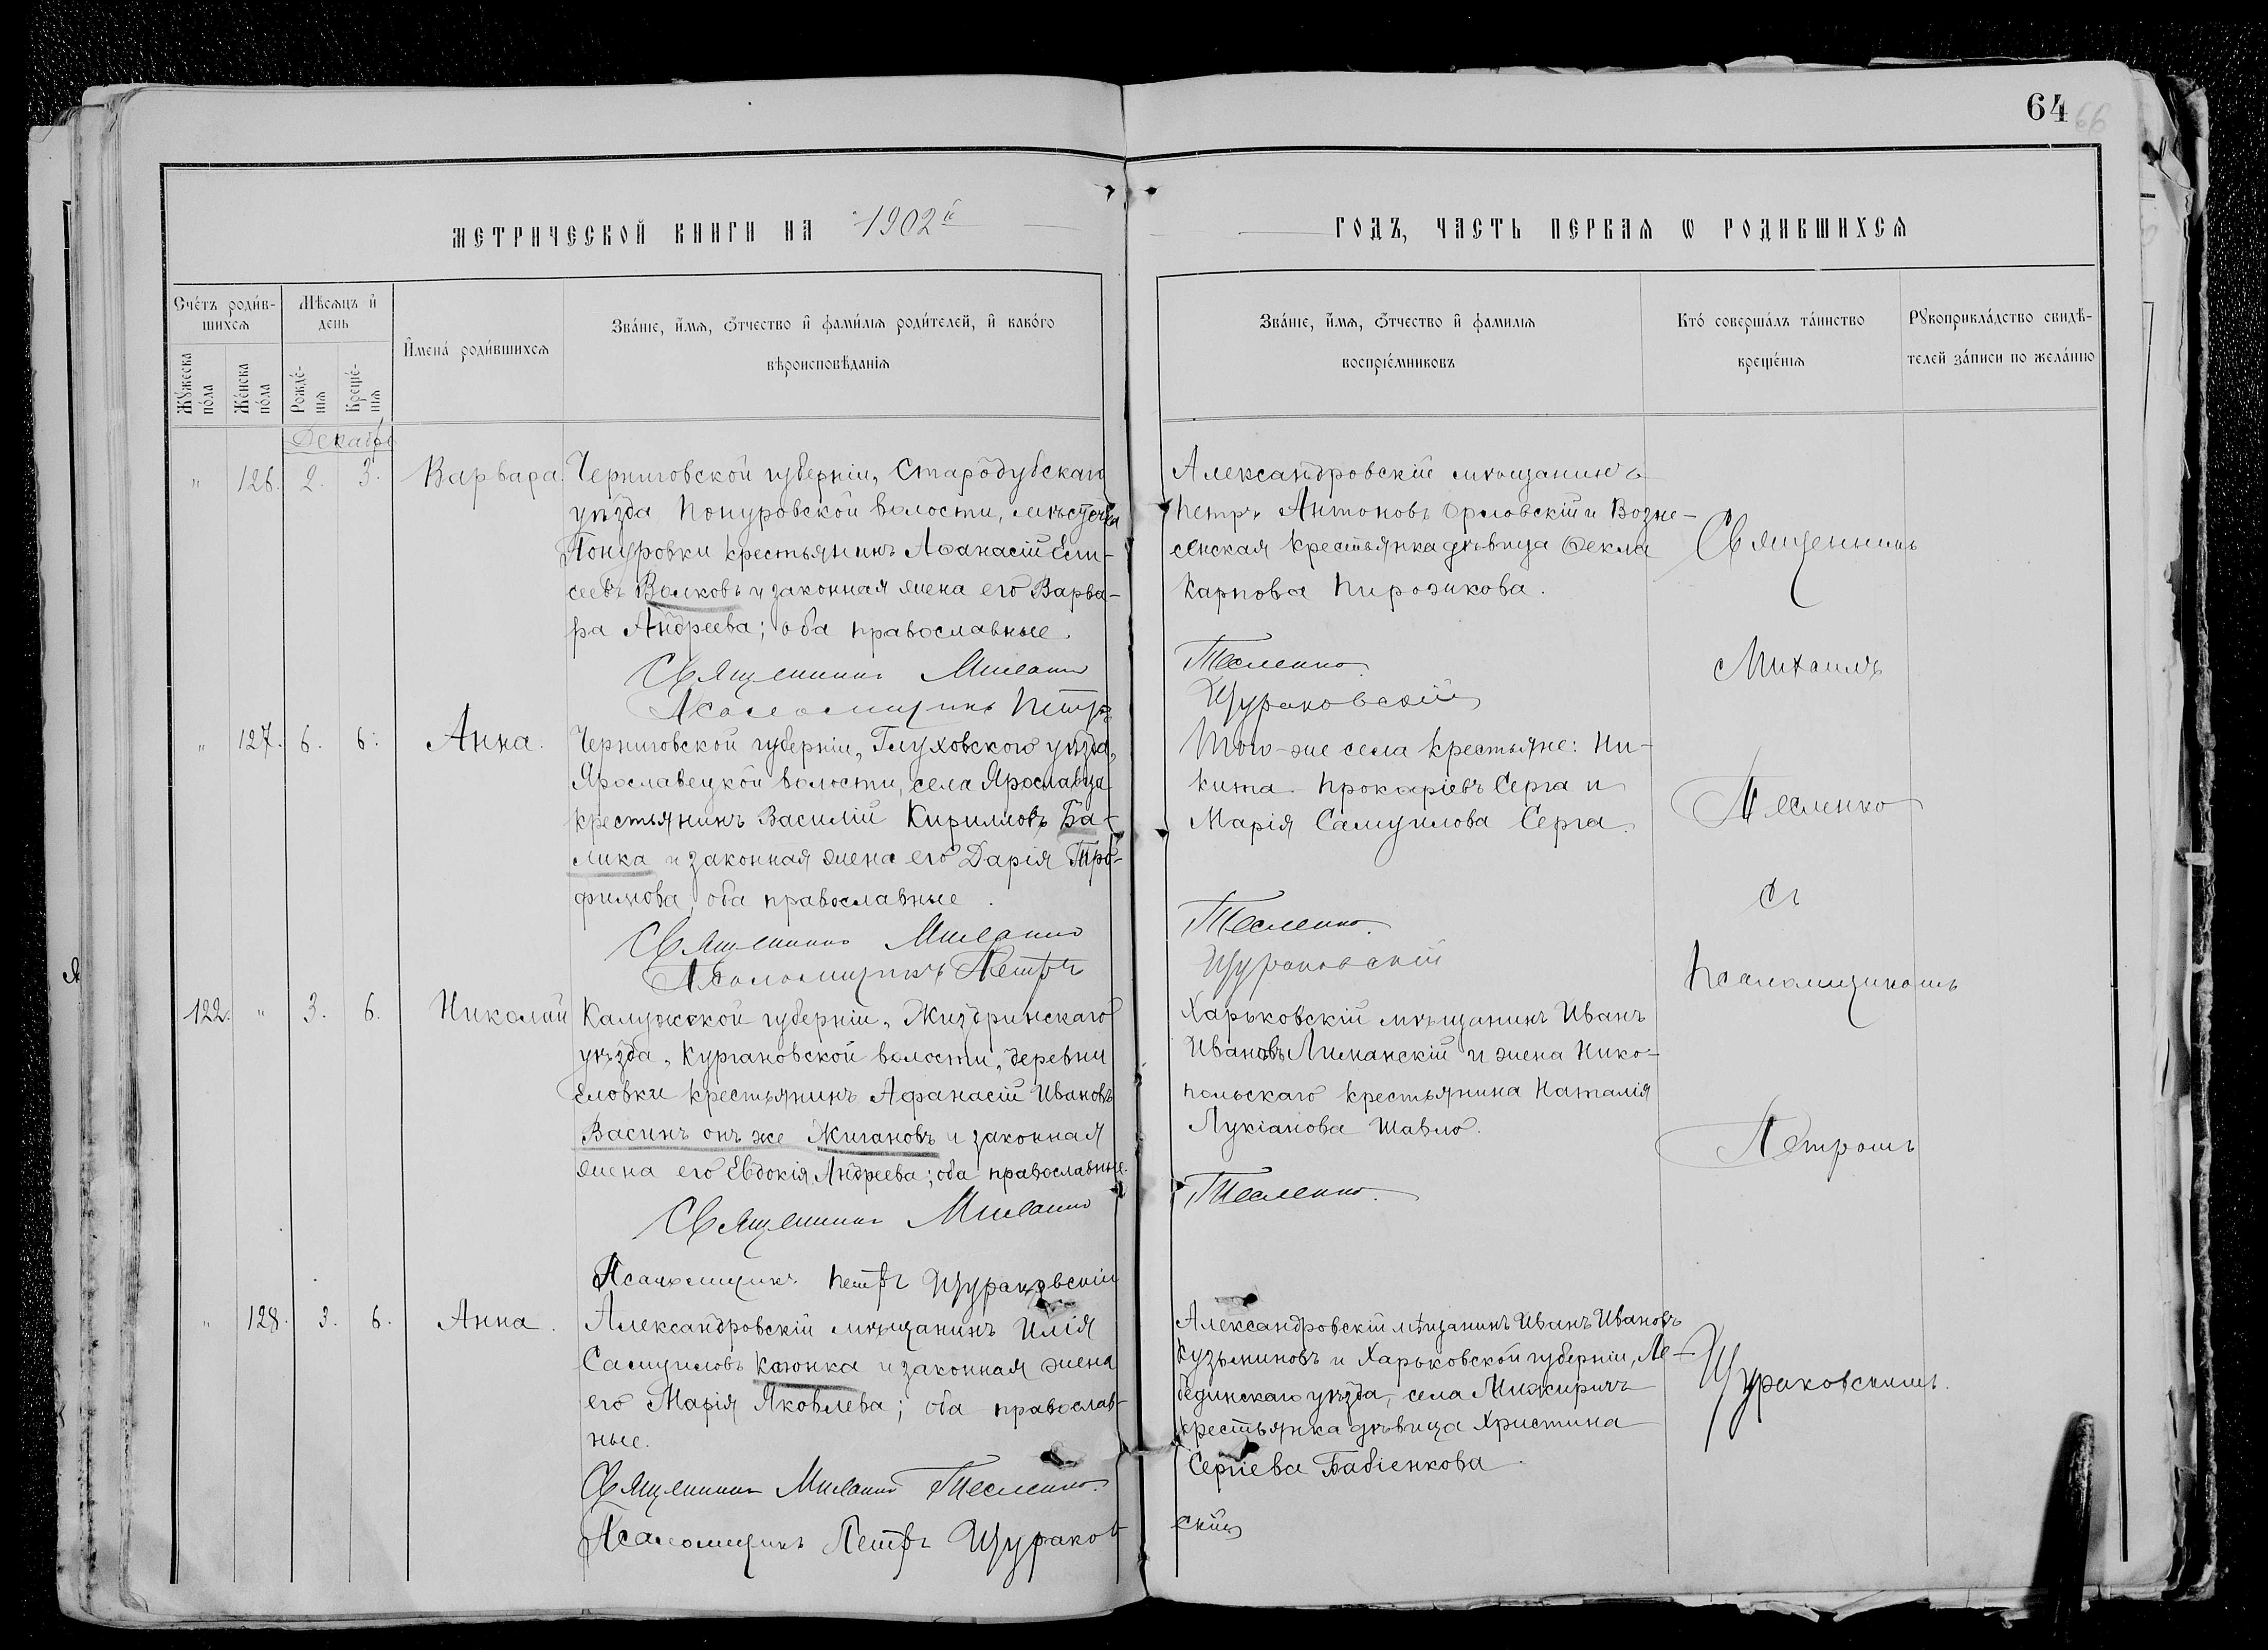 64 66
МЕТРИЧЕСКОЙ КНИГИ НА 1902й
ГОДЪ, ЧАСТЬ ПЕРВАЯ Ѡ РОДИВШИХСЯ
Счетъ родив-
шихся
Мѣсяцъ и
день
Мужеска
пола
Женска
пола
Рожде-
нія
Креще-
нія
Имена родившихся
Званіе, имя, отчество и фамилія родителей, и какого
вѣроисповѣданія
Званіе, имя, отчество и фамилія
воспріемниковъ
Кто совершалъ таинство
крещенія
Рукоприкладство свидѣ-
телей записи по желанію
Декабрь
" 126. 2. 3. Варвара.
Черниговской губерніи, Стародубскаго
уѣзда, Понуровской волости, мѣстечка
Понуровки крестьянинъ Аѳанасій Ели-
сеевъ Волковъ и законная жена его Варва-
ра Андреева; оба православные.
Священникъ Михаилъ
Псаломщикъ Петръ
Александровскій мѣщанинъ
Петръ Антоновъ Орловскій и Возне-
сенская крестьянка дѣвица Ѳекла
Карпова Пирожкова.
Тесленко.
Щураковскій
" 127. 6. 6. Анна.
Черниговской губерніи, Глуховского уѣзда,
Ярославецкой волости, села Ярославца
крестьянинъ Василій Кирилловъ Ба-
лика и законная жена его Дарія Тро-
фимова, оба православные.
Священникъ Михаилъ
Псаломщикъ Петръ
Того-же села крестьяне: Ни-
кита Прокофіевъ Серга и
Марія Самуилова Серга.
Тесленко.
Щураковскій
122. " 3. 6. Николай
Калужской губерніи, Жиздринскаго
уѣзда, Кургановской волости, деревни
Еловки крестьянинъ Афанасій Ивановъ
Васинъ онъ же Жигановъ и законная
жена его Евдокія Андреева; оба православные.
Священникъ Михаилъ
Псаломщикъ Петръ Щураковскій
Харьковскій мѣщанинъ Иванъ
Ивановъ Лиманскій и жена Нико-
польскаго крестьянина Наталія
Лукіанова Шавло.
Тесленко.
" 128. 3. 6. Анна.
Александровскій мѣщанинъ Илія
Самуиловъ Каюнка и законная жена
его Марія Яковлева; оба православ-
ные.
Священникъ Михаилъ Тесленко.
Псаломщикъ Петръ Щураков-
Александровскій мѣщанинъ Иванъ Ивановъ
Кузьминовъ и Харьковской губерніи, Ле-
бединскаго уѣзда, села Мижиричъ
крестьянка дѣвица Христина
Сергіева Бабіенкова.
скій
Священникъ
Михаилъ
Тесленко
съ
Псаломщикомъ
Петромъ
Щураковскимъ.